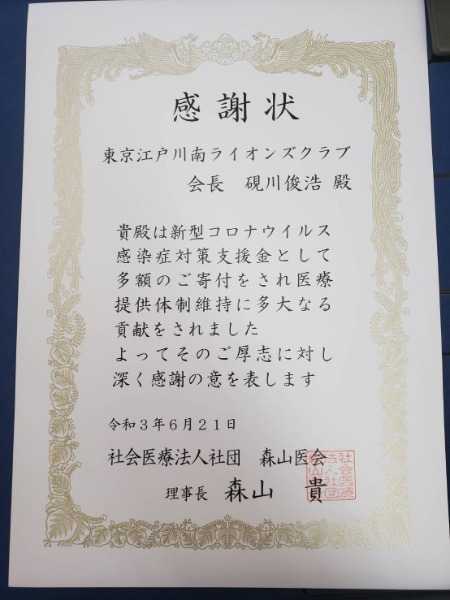 感謝状
東京江戸川南ライオンズクラブ
会長 硯川俊浩 殿
貴殿は新型コロナウイルス
感染症対策支援金として
多額のご寄付をされ医療
提供体制維持に多大なる
貢献をされました
よってそのご厚志に対し
深く感謝の意を表します
令和3年6月21日
社会医療法人社団 森山医会
理事長 森山 貴